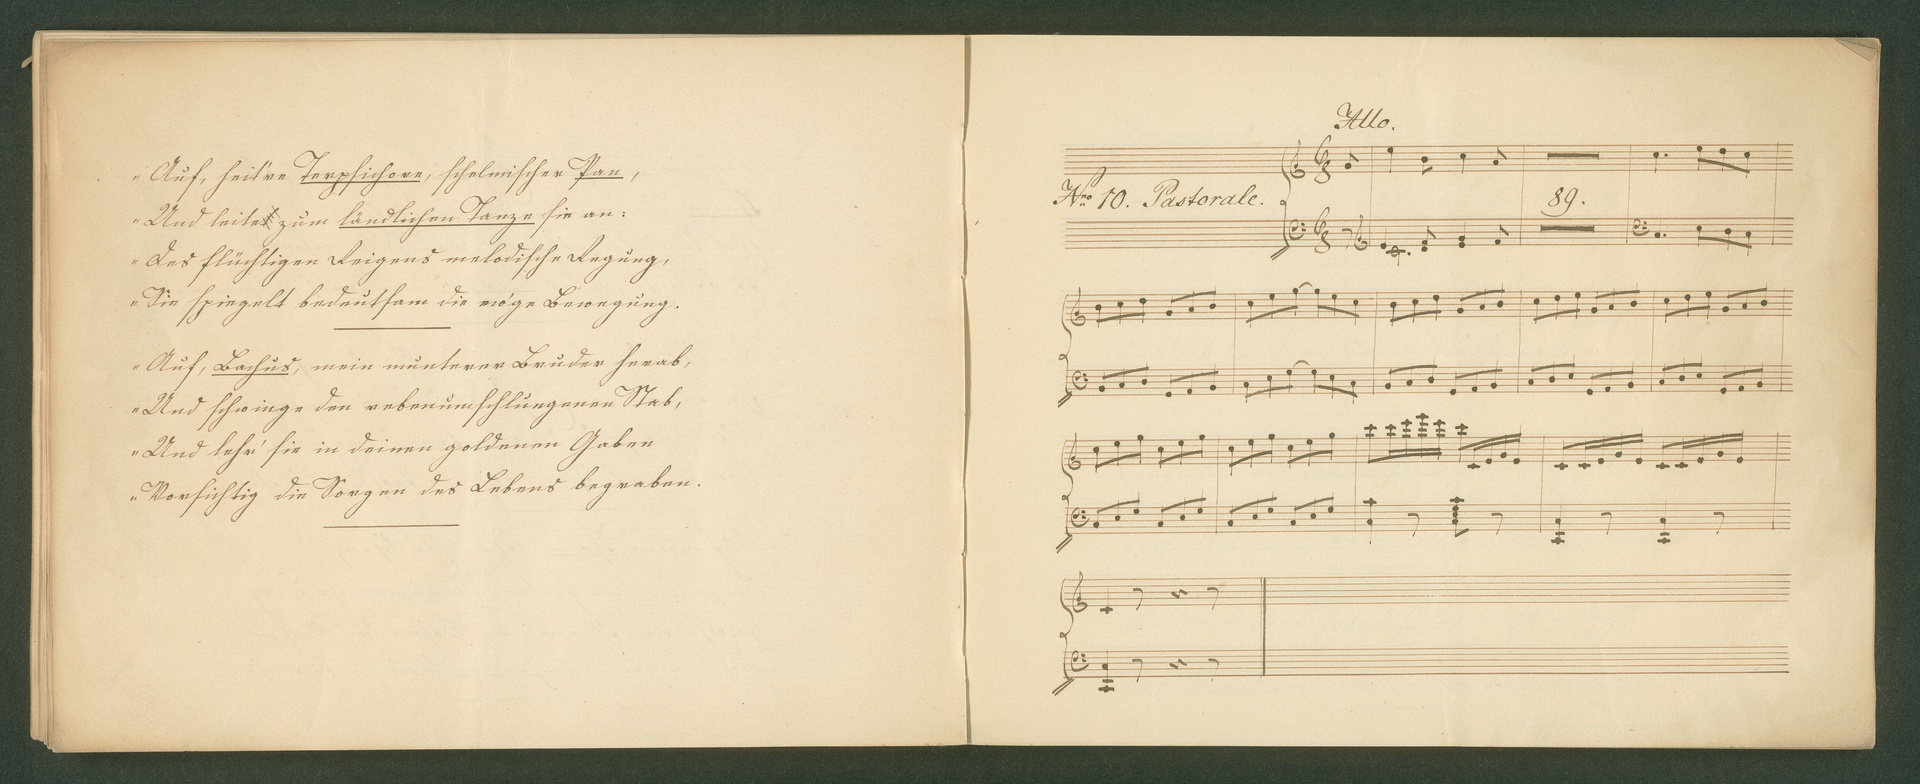 „Auf, heit're Terpsichore, schelmischer Pan,
„Und leitet zum ländlichen Tanze sie an:
„Des flüchtigen Reigens melodische Regung,
„Sie spiegelt bedeutsam die ew'ge Bewegung.
„Auf, Bachus, mein munterer Bruder herab,
„Und schwinge den rebenumschlungenen Stab,
„Und lehr' sie in deinen goldenen Gaben
„Vorsichtig die Sorgen des Lebens begraben.
Allo.
Nro 10. Pastorale.
89.